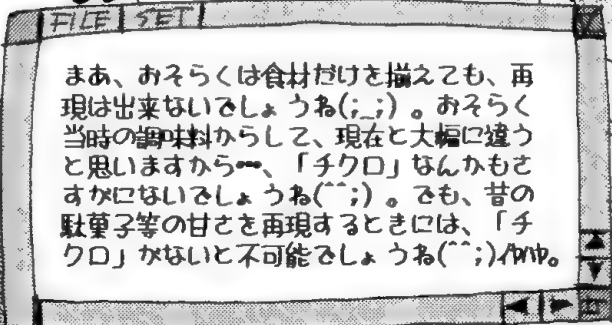 FILE SET
まあ、おそらくは食材だけを揃えても、再
現は出来ないでしょうね(;_;)。おそらく
当時の調味料からして、現在と大幅に違う
と思いますから…、「チクロ」なんかもさ
すがにないでしょうね(^^;)。でも、昔の
駄菓子等の甘さを再現するときには、「チ
クロ」がないと不可能でしょうね(^^;)